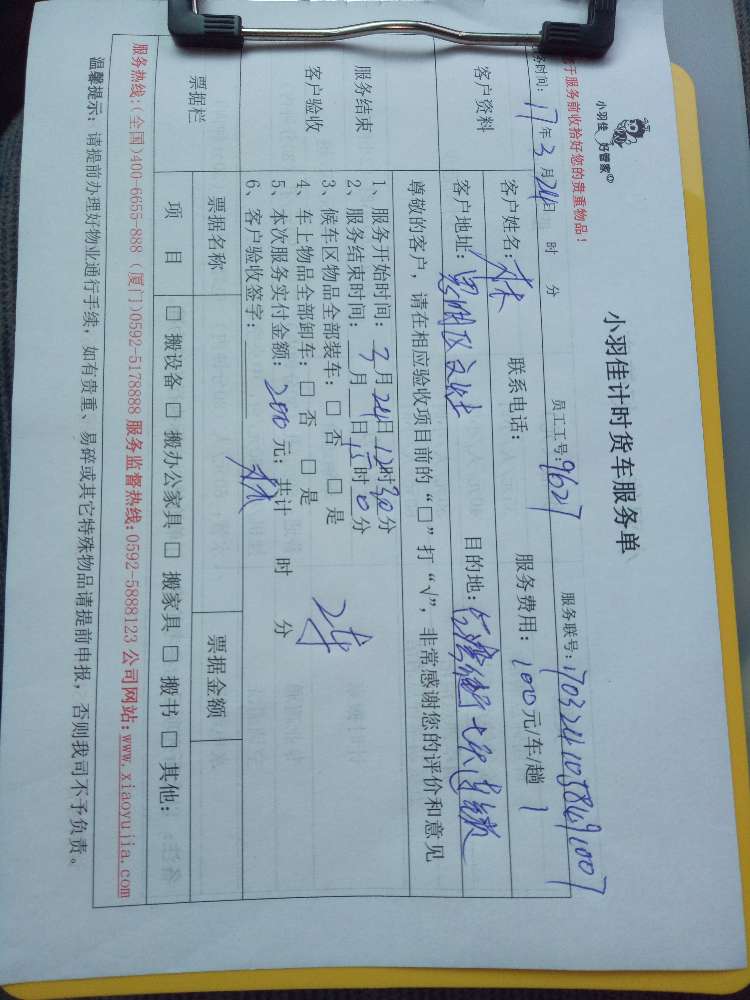 小羽佳 好管家
小羽佳计时货车服务单
于服务前收拾好您的贵重物品！
务时间：17年3月24日 时 分 员工工号：9627 服务联号：1703241058491007
客户资料
客户姓名：林 联系电话： 服务费用：100元/车/趟
客户地址：思明区文灶 目的地：
尊敬的客户，请在相应验收项目前的“□”打“√”，非常感谢您的评价和意见
服务结束
客户验收
1、服务开始时间：3月24日12时30分
2、服务结束时间： 月 日15时0分
3、候车区物品全部装车：□ 否 □ 是
4、车上物品全部卸车：□ 否 □ 是
5、本次服务实付金额：200元；共计 时 分
6、客户验收签字：林
2车
票据栏
票据名称 票据金额
项 目 □ 搬设备 □ 搬办公家具 □ 搬家具 □ 搬书 □ 其他：
服务热线：(全国)400-6655-888 (厦门)0592-5178888 服务监督热线：0592-5888123 公司网站：www.xiaoyujia.com
温馨提示：请提前办理好物业通行手续，如有贵重、易碎或其它特殊物品请提前申报，否则我司不予负责。